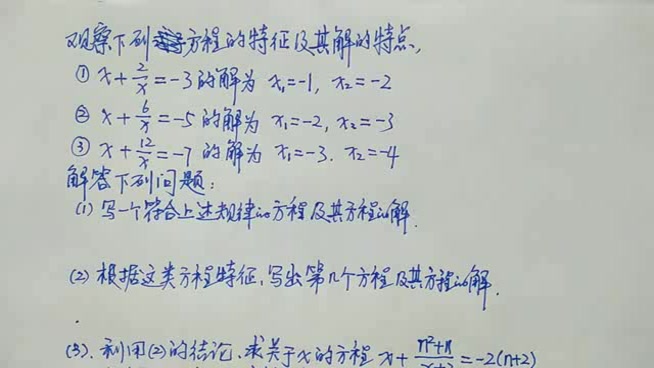 观察下列方程的特征及其解的特点,
① x + 2/x = -3 的解为 x₁=-1, x₂=-2
② x + 6/x = -5 的解为 x₁=-2, x₂=-3
③ x + 12/x = -7 的解为 x₁=-3. x₂=-4
解答下列问题:
(1) 写一个符合上述规律的方程及其方程的解.
(2) 根据这类方程特征, 写出第n个方程及其方程的解.
(3). 利用(2)的结论. 求关于x的方程 x + (n²+n)/(x+3) = -2(n+2)